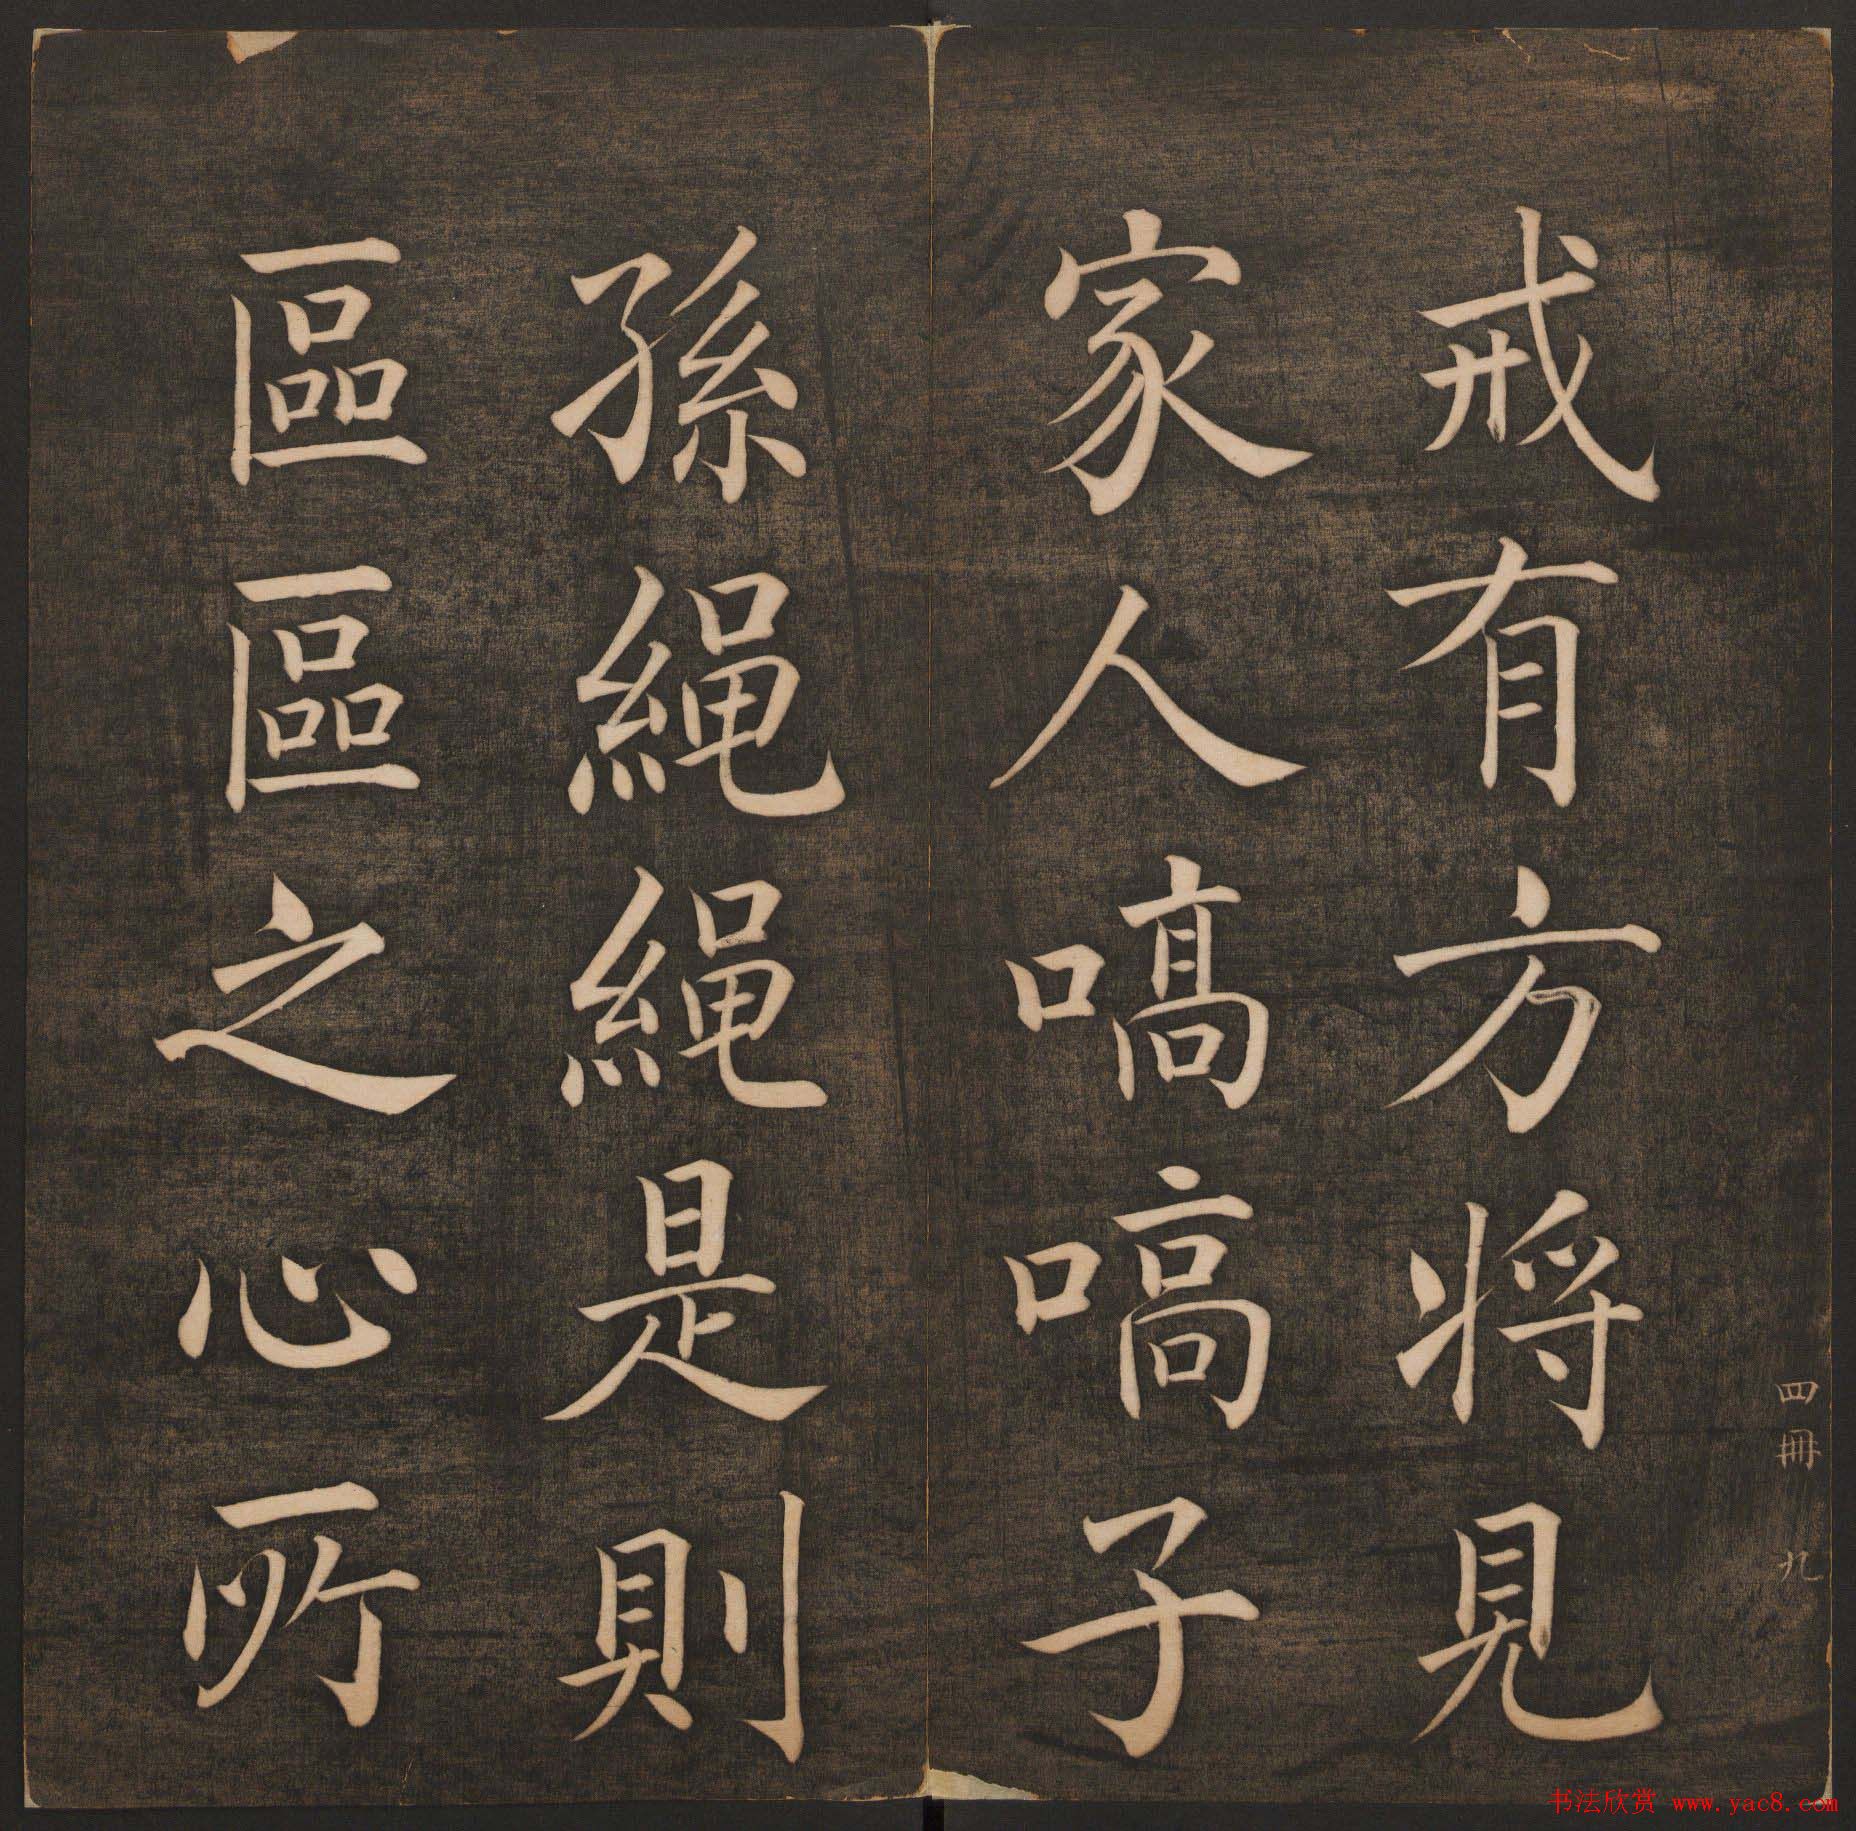 四冊 九
戒有方将見
家人嗃嗃子
孫繩繩是則
區區之心所
书法欣赏 www.yac8.com